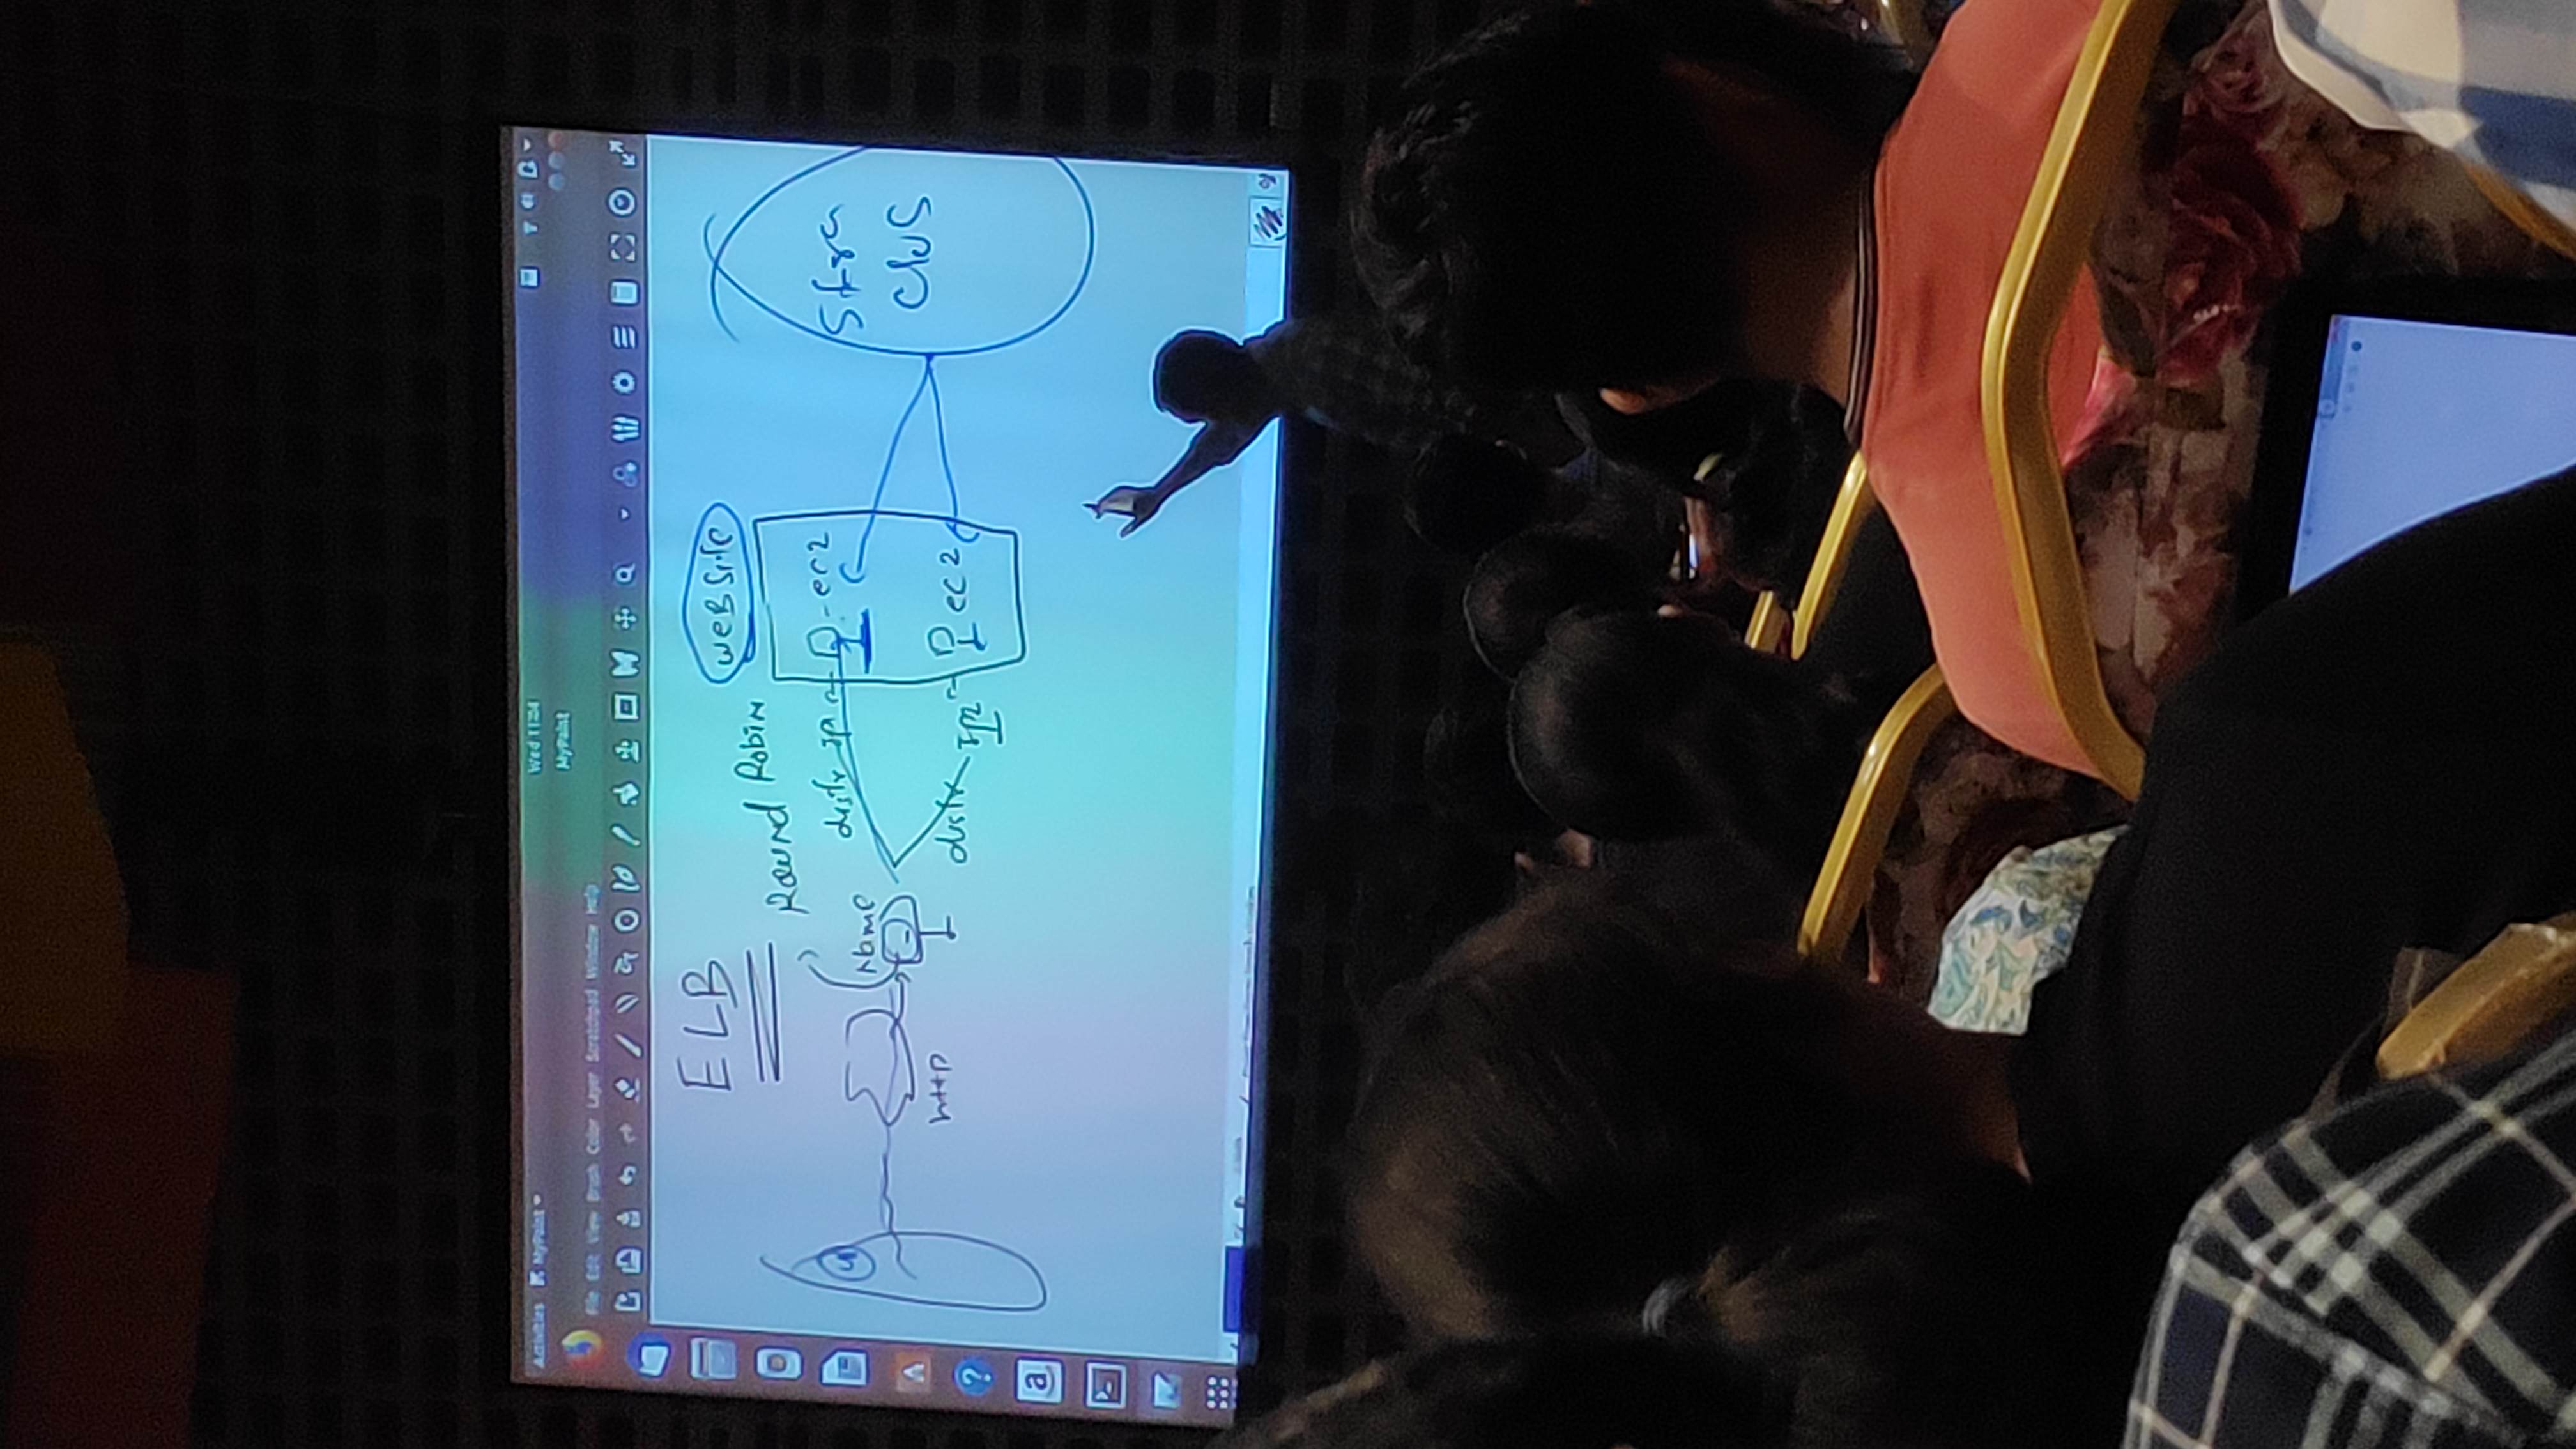 Activities MyPaint
Wed 11:04
MyPaint
File Edit View Brush Color Layer Scratchpad Window Help
ELB
Round Robin
Web Site
http
Name
distr IP
distr IP2
ec2
ec2
Clus